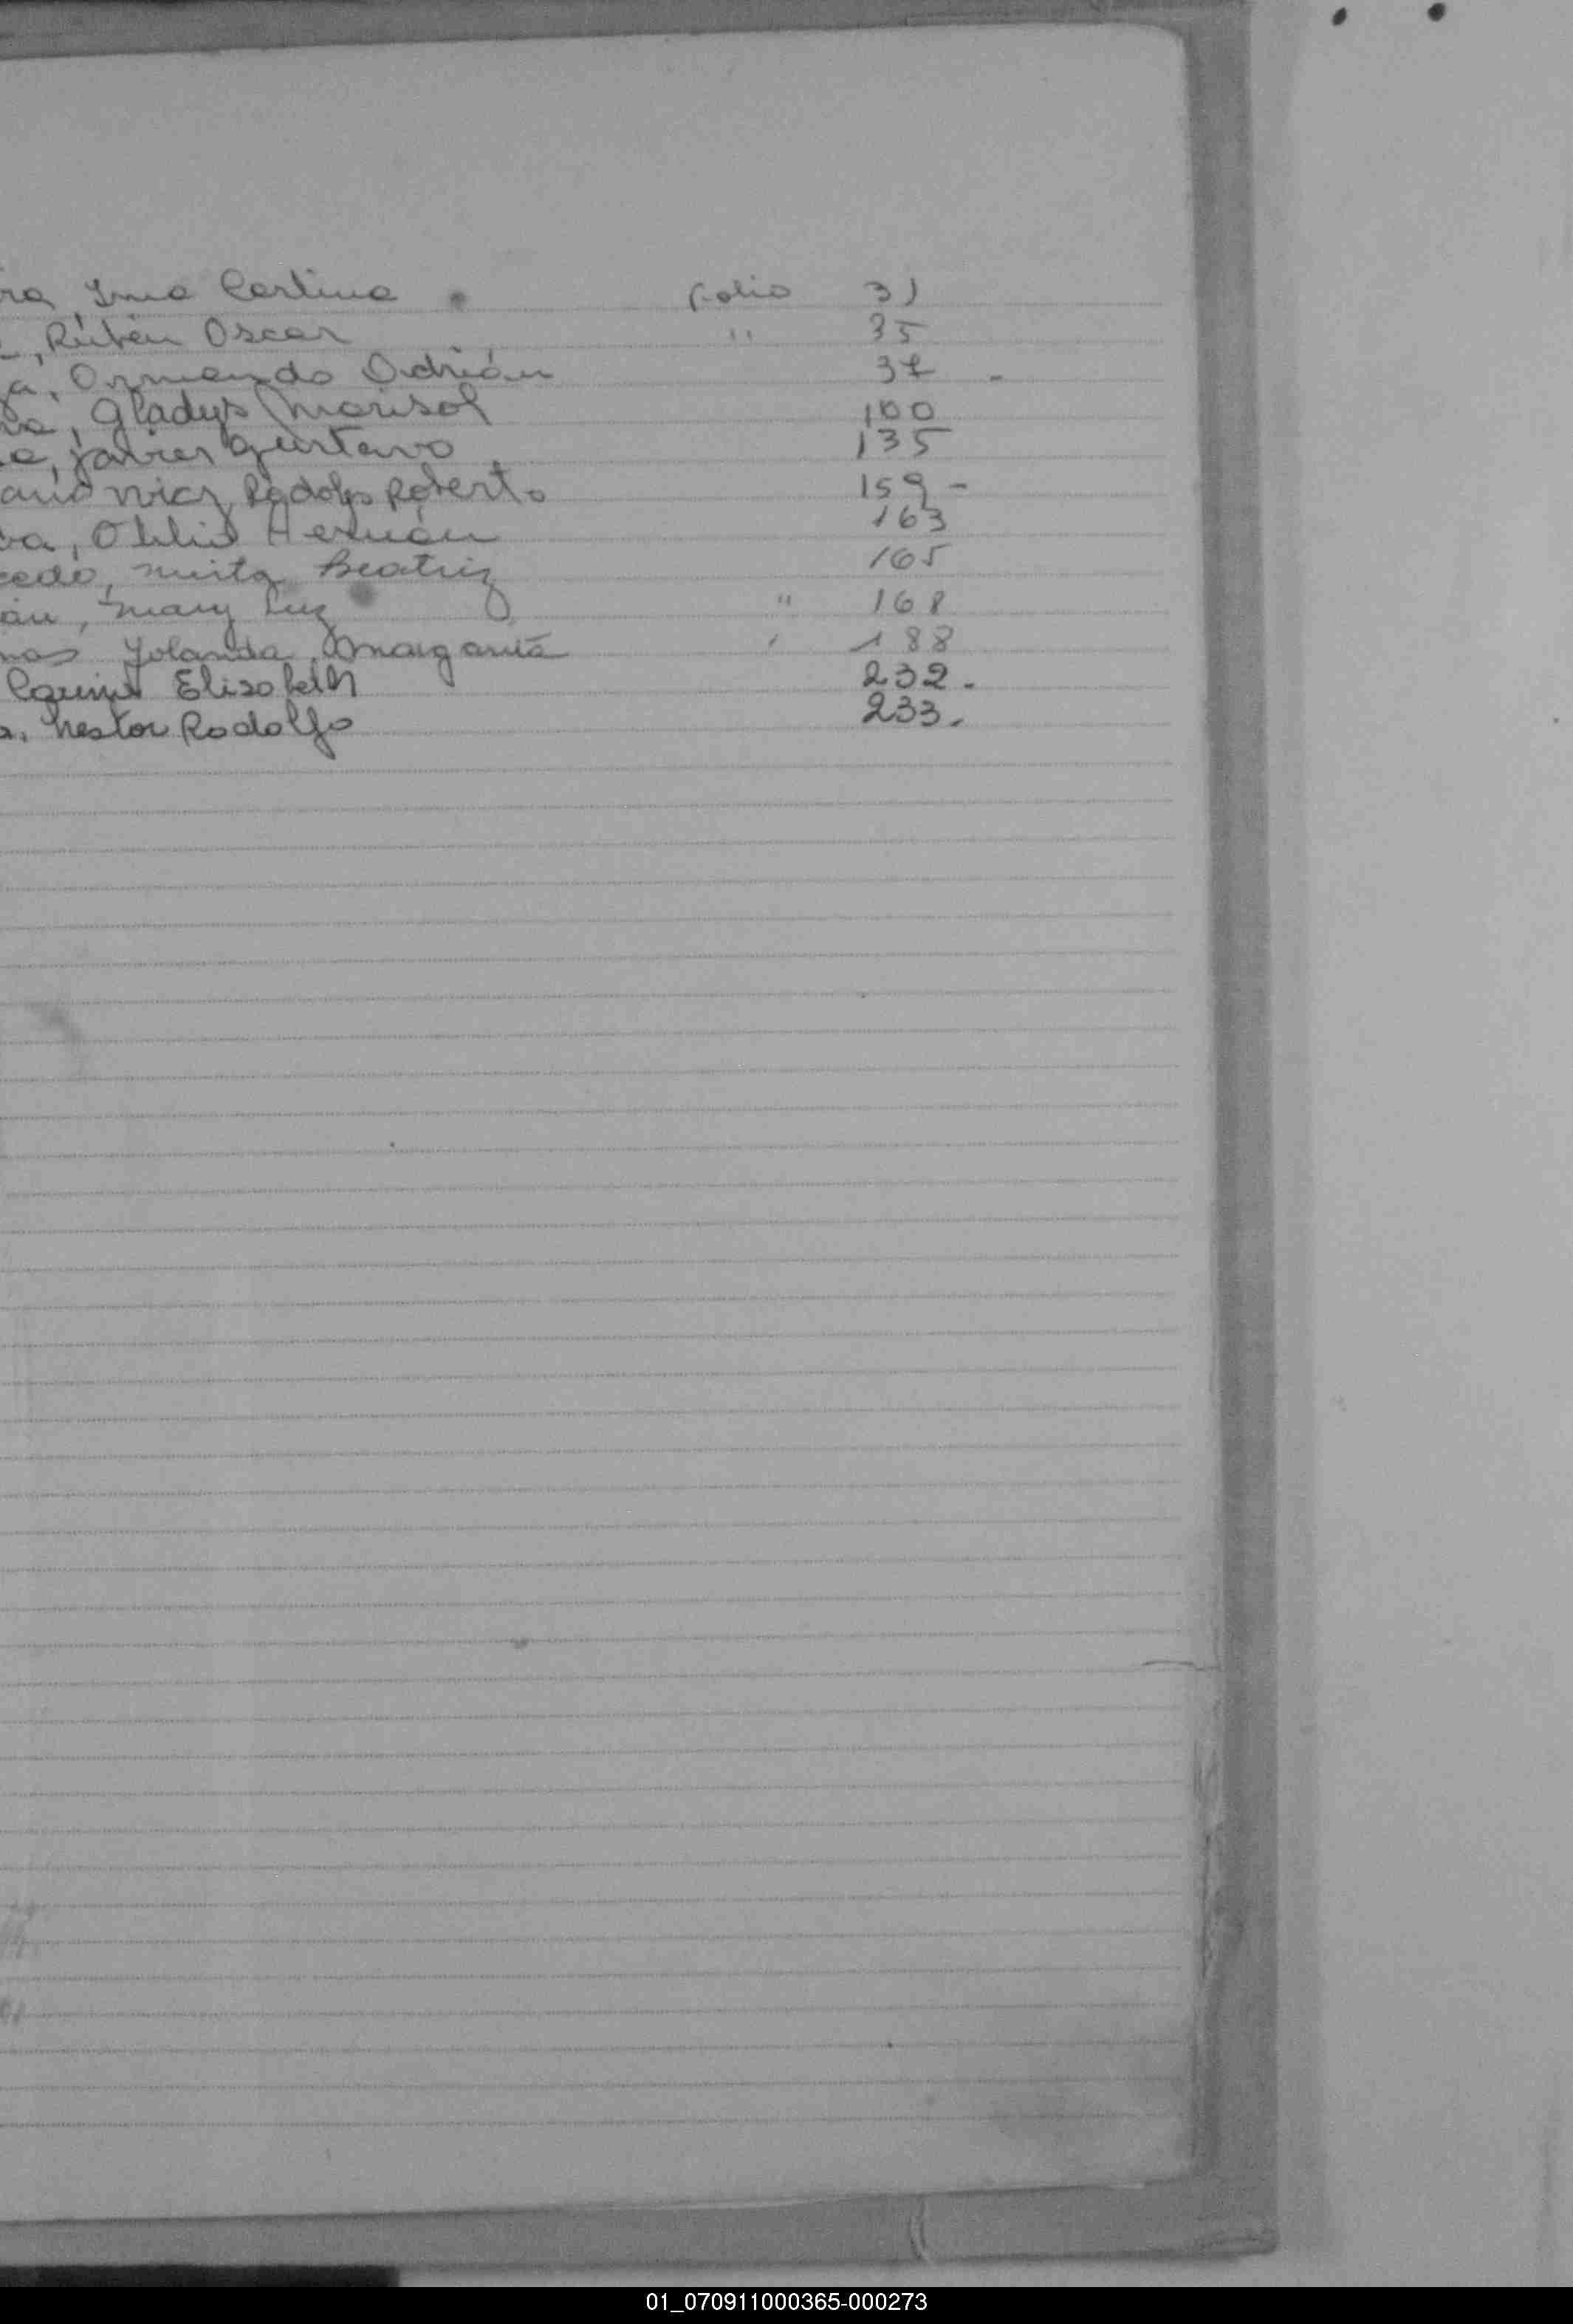 ra, Irma Carlina folio 31
, Rubén Oscar " 35
a, Armando Adrián 37 -
va, Gladys Marisol 100
e, Javier Gustavo 135
Rodolfo Roberto 159 -
va, Hernán 163
cedo, Mirta Beatriz 165
án, Mary Luz " 168
nas Yolanda Margarita " 188
Elisabeth 232.
a, Nestor Rodolfo 233.
01_070911000365-000273